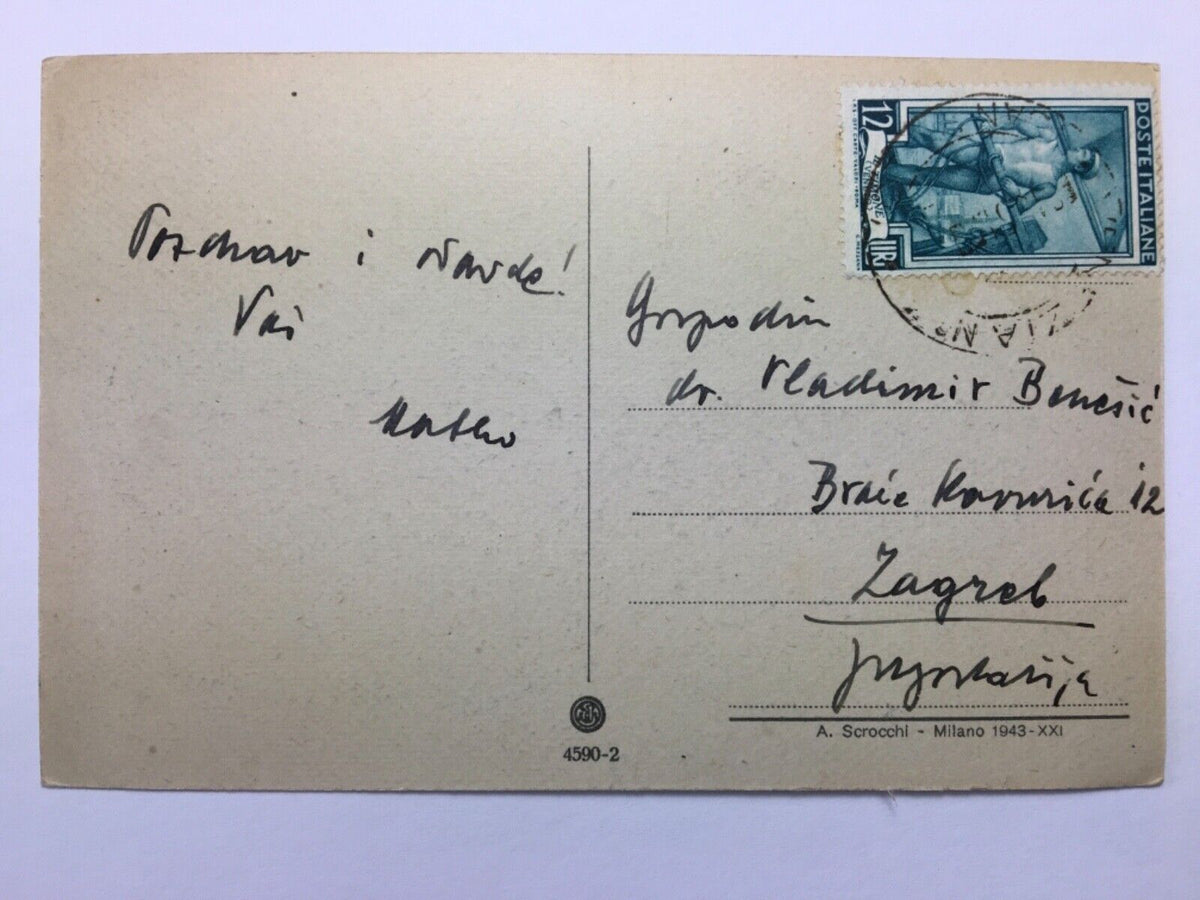 Pozdrav i odavde!
Vaš
Matko
POSTE ITALIANE
12
LIRE
Gospodin
dr. Vladimir Benešić
Braće Kavurića 12
Zagreb
Jugoslavija
A. Scrocchi - Milano 1943-XXI
4590-2